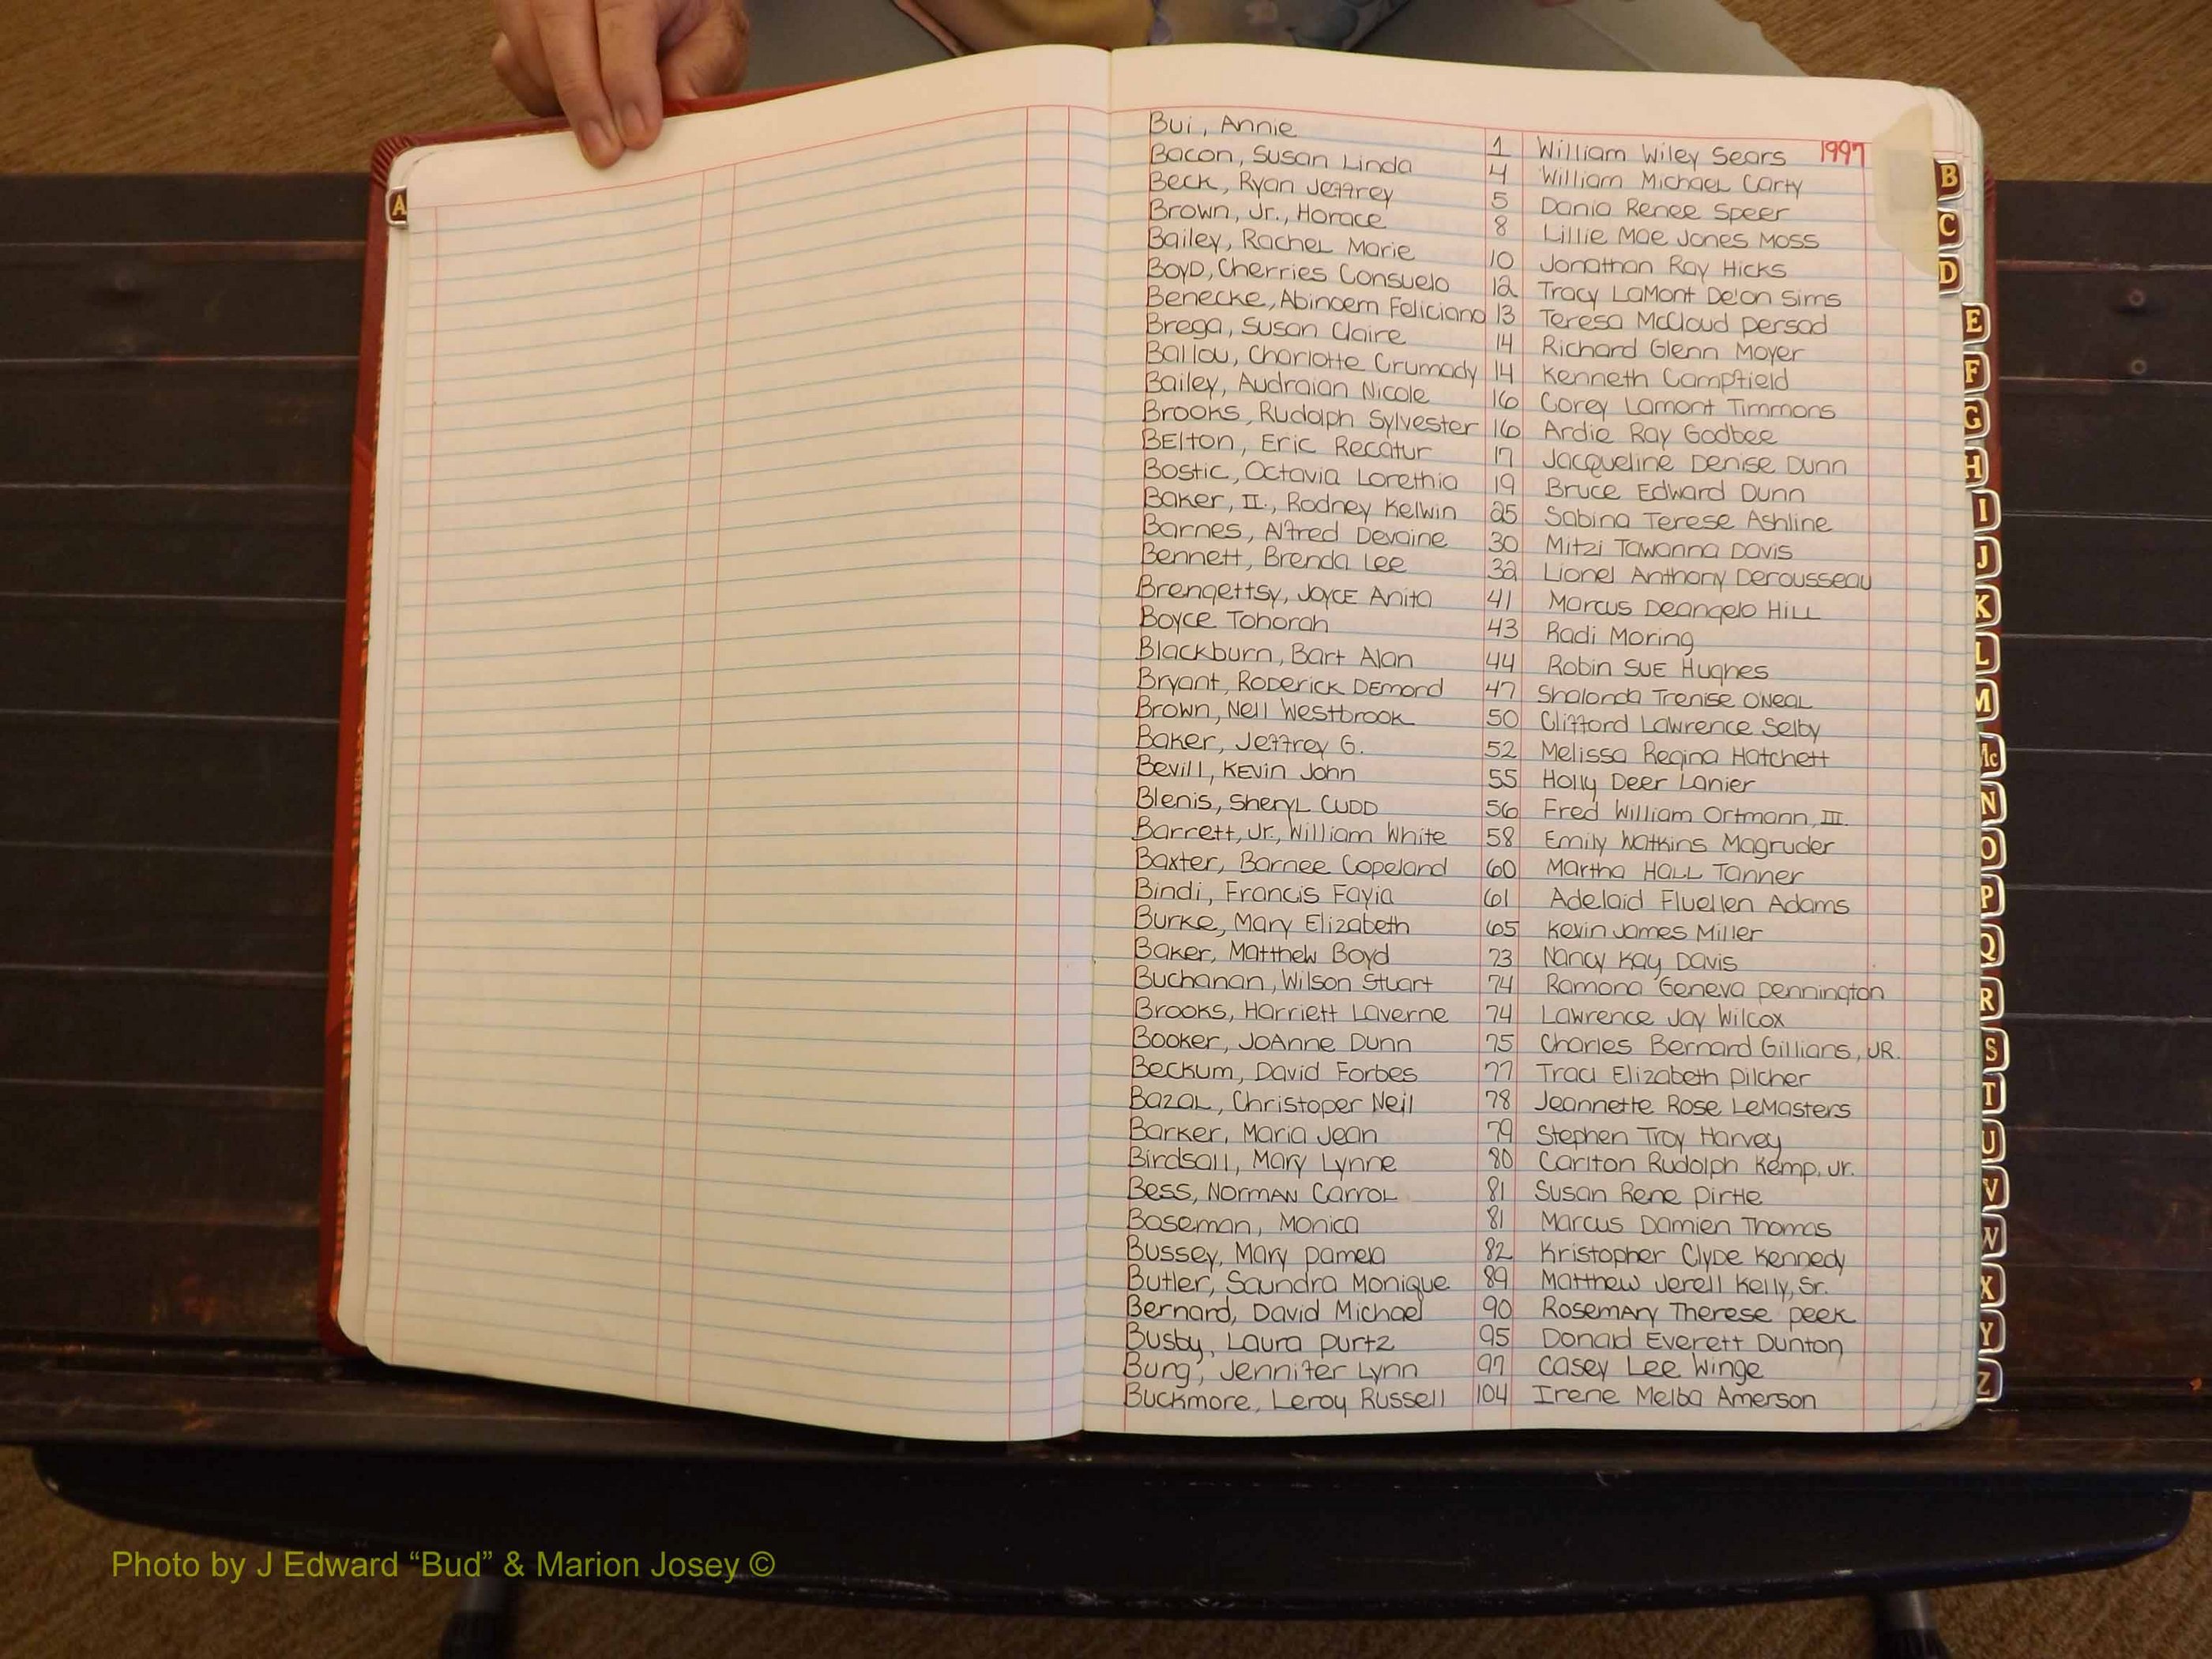 Bui, Annie 1 William Wiley Sears 1997
Bacon, Susan Linda 4 William Michael Carty
Beck, Ryan Jeffrey 5 Dania Renee Speer
Brown, Jr., Horace 8 Lillie Mae Jones Moss
Bailey, Rachel Marie 10 Jonathan Ray Hicks
Boyd, Cherries Consuelo 12 Tracy LaMont De'on Sims
Benecke, Abinoem Feliciano 13 Teresa McCloud Persad
Brega, Susan Claire 14 Richard Glenn Moyer
Ballou, Charlotte Crumady 14 Kenneth Campfield
Bailey, Audraian Nicole 16 Corey Lamont Timmons
Brooks, Rudolph Sylvester 16 Ardie Ray Godbee
Belton, Eric Recatur 17 Jacqueline Denise Dunn
Bostic, Octavia Lorethia 19 Bruce Edward Dunn
Baker, II., Rodney Kelwin 25 Sabina Terese Ashline
Barnes, Alfred Devaine 30 Mitzi Tawanna Davis
Bennett, Brenda Lee 32 Lionel Anthony Derousseau
Brengettsy, Joyce Anita 41 Marcus Deangelo Hill
Boyce Tohorah 43 Radi Moring
Blackburn, Bart Alan 44 Robin Sue Hughes
Bryant, Roderick Demond 47 Shalonda Trenise O'Neal
Brown, Nell Westbrook 50 Clifford Lawrence Selby
Baker, Jeffrey G. 52 Melissa Regina Hatchett
Bevill, Kevin John 55 Holly Deer Lanier
Blenis, Sheryl Cudd 56 Fred William Ortmann, III.
Barrett, Jr., William White 58 Emily Watkins Magruder
Baxter, Barnee Copeland 60 Martha Hall Tanner
Bindi, Francis Fayia 61 Adelaid Fluellen Adams
Burke, Mary Elizabeth 65 Kevin James Miller
Baker, Matthew Boyd 73 Nancy Kay Davis
Buchanan, Wilson Stuart 74 Ramona Geneva Pennington
Brooks, Harriett Laverne 74 Lawrence Jay Wilcox
Booker, JoAnne Dunn 75 Charles Bernard Gillians, JR.
Beckum, David Forbes 77 Traci Elizabeth Pilcher
Bazal, Christoper Neil 78 Jeannette Rose LeMasters
Barker, Maria Jean 79 Stephen Troy Harvey
Birdsall, Mary Lynne 80 Carlton Rudolph Kemp, Jr.
Bess, Norman Carrol 81 Susan Rene Pirtle
Baseman, Monica 81 Marcus Damien Thomas
Bussey, Mary Pamela 82 Kristopher Clyde Kennedy
Butler, Saundra Monique 89 Matthew Jerell Kelly, Sr.
Bernard, David Michael 90 Rosemary Therese Peek
Busby, Laura Purtz 95 Donald Everett Dunton
Burg, Jennifer Lynn 97 Casey Lee Winge
Buckmore, Leroy Russell 104 Irene Melba Amerson
A
B
C
D
E
F
G
H
I
J
K
L
M
Mc
N
O
P
Q
R
S
T
U
V
W
X
Y
Z
Photo by J Edward “Bud” & Marion Josey ©